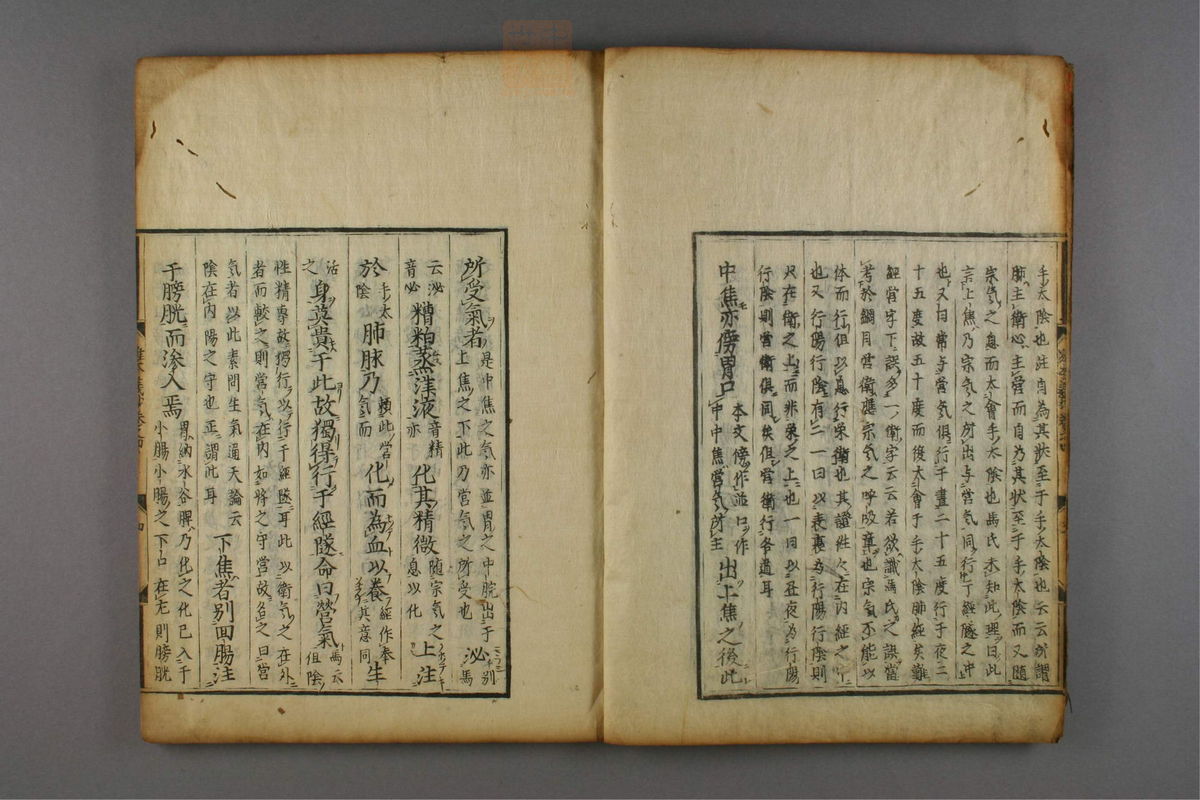 手太陰也註自為其狀至于手太陰也云云所謂
肺主衛心主營而自乃其狀至于手太陰而又隨
宗氣之息而太會手太陰也馬氏未知此理曰此
言上焦乃宗氣之所出与營氣同行丁經隧之中
也又曰常与營氣俱行于晝二十五度行于夜二
十五度故五十度而後大會于手太陰肺經矣難
經當字下誤多一衛字云云若欲識馬氏之誤當
考於綱目營衛
体而行但以息行榮衛也其證件々在内經之中
也又行陽行陰有二一曰以表裏為行陽行陰則
只在衛之上而非榮之上也一曰以昼夜為行陽
行陰則營衛俱同矣但營衛行各道耳
中焦亦傍胃口 本文傍作並口作
中中焦營氣所主 出上焦之後此
所受氣者 是中焦之氣亦並胃之中脘出于
上焦之下此乃營氣之所受也 泌 馬
云泌 別
音必 糟粕蒸津液 音精
亦 化其精微 随宗氣之
息以化 上注
於 手太
陰 肺脉乃 類此當
氣而 化而為血以養 經作奉
其意同 生
活
之 身莫貴于此故獨得行于經隧命曰營氣 馬云
但陰
性精專故行以行于經隧耳此以衛氣之在外
者而較之則營氣在内如將之守營故自之曰營
氣者以此素問生氣通天論云
陰在内陽之守也正謂此耳 下焦者别回腸注
于膀胱而滲入焉 胃納水谷脾乃化之化已入于
小腸小腸之下口在左則膀胱